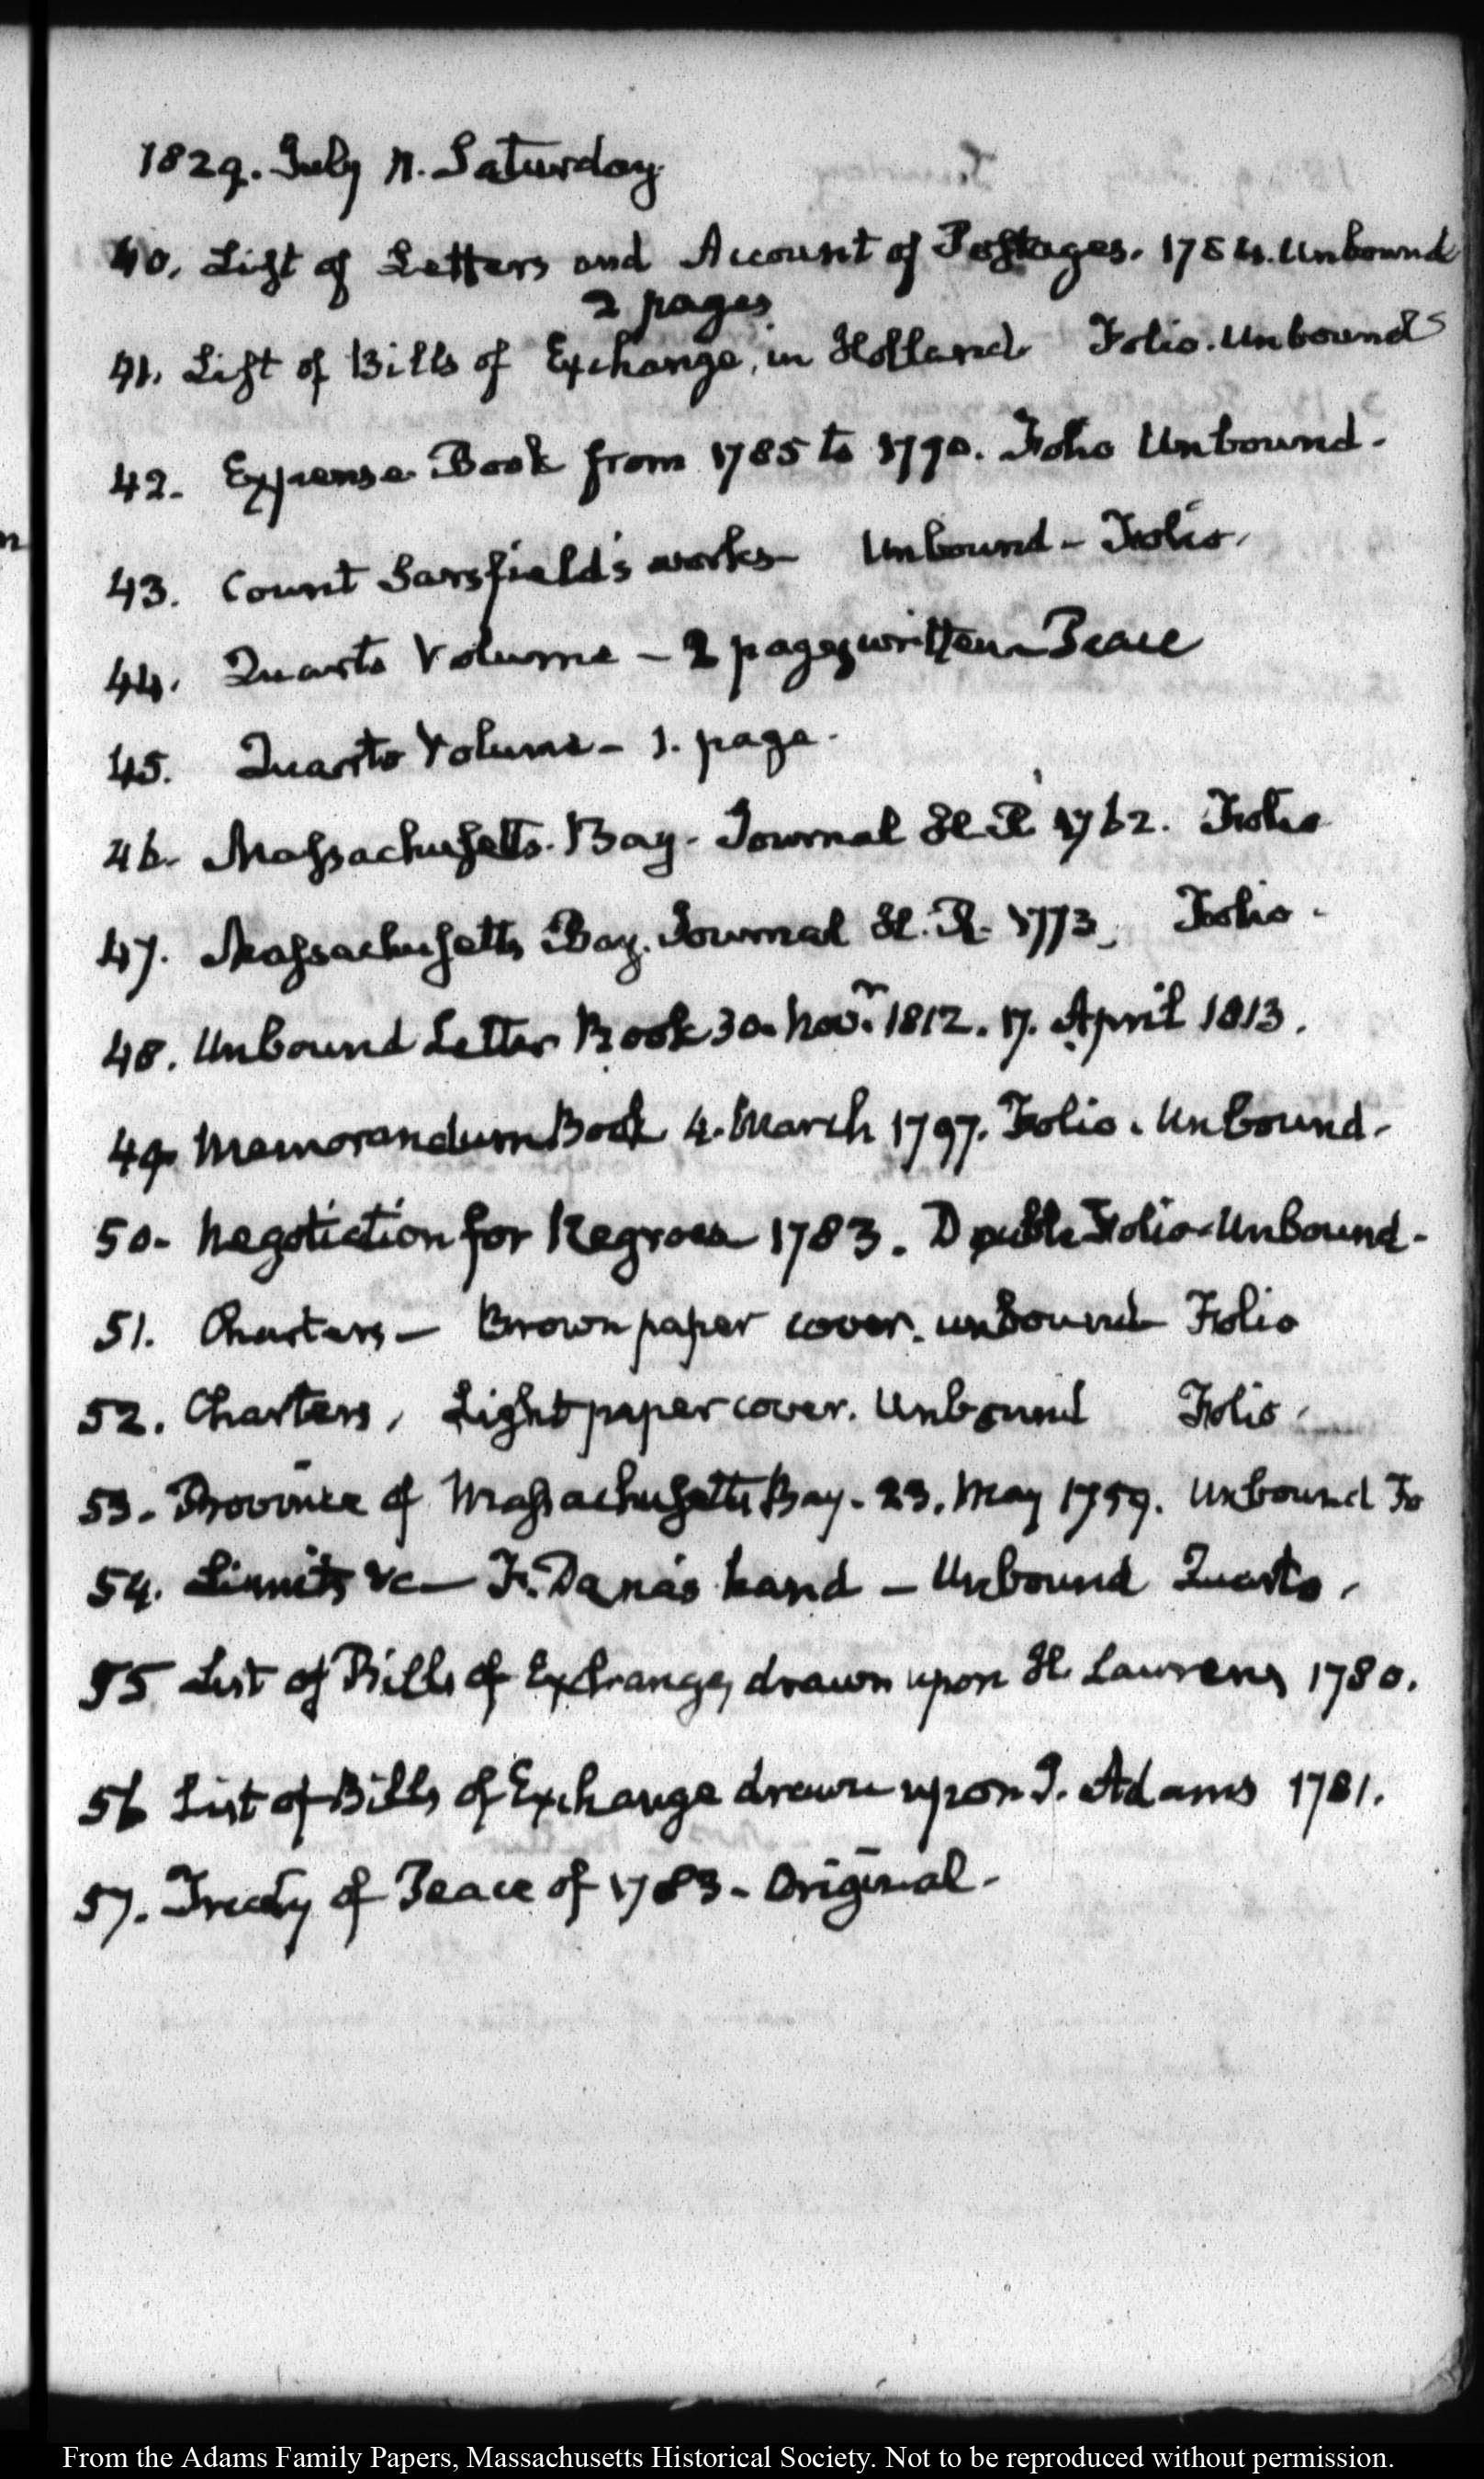 1829. July 11. Saturday.
40. List of Letters and Account of Postages. 1784. Unbound
2 pages
41. List of Bills of Exchange, in Holland Folio. Unbound
42. Expense Book from 1785 to 1790. Folio Unbound.
43. Count Sarsfield's works Unbound - Folio.
44. Quarto Volume - 2 pages written - Peace
45. Quarto Volume - 1. page.
46. Massachusetts. Bay. Journal H. R. 1762. Folio
47. Massachusetts Bay. Journal H. R. 1773. Folio.
48. Unbound Letter Book 30. Nov.r 1812. 17. April 1813.
49. Memorandum Book 4. March 1797. Folio. Unbound.
50. Negotiation for Negroes 1783. Double Folio - Unbound.
51. Charters - Brown paper cover. unbound Folio
52. Charters, Light paper cover. Unbound Folio.
53. Province of Massachusetts Bay. 23. May 1759. Unbound Fo
54. Limits &c - F. Dana's hand - Unbound Quarto.
55 List of Bills of Exchange, drawn upon H. Laurens 1780.
56 List of Bills of Exchange drawn upon J. Adams 1781.
57. Treaty of Peace of 1783 - Original.
From the Adams Family Papers, Massachusetts Historical Society. Not to be reproduced without permission.